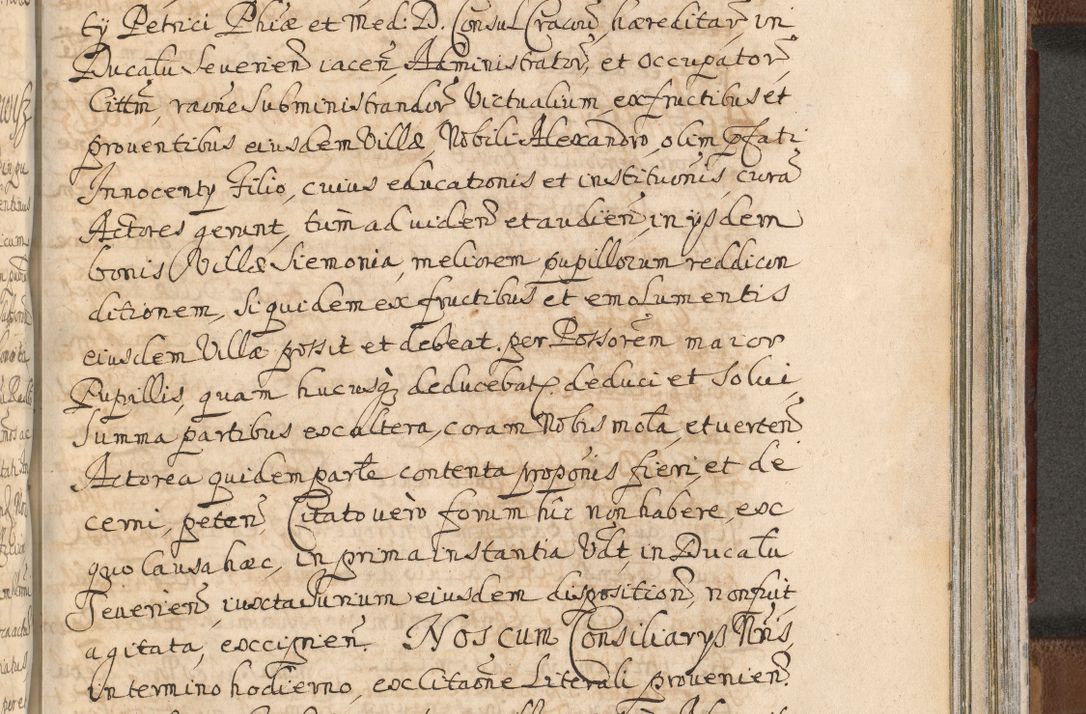 ty Petrici Phiæ et Med: D. Consul Cracoñ, hæreditar̃ in
Ducatu Severieñ iaceñ, Administrator̃, et Occupator̃,
Cittm̃, raõne Subministrandor̃ Victualium, ex fructibus et
proventibus eiusdem Villæ, Nobili Alexandro, olim pfati
Innocenty Filio, cuius educationis et instituõnis curã
Actores gerunt, tum ad videñ et audieñ, in ysdem
bonis Villæ Siemonia, meliorem pupillorum reddi con
ditionem, Siquidem ex fructibus et emolumentis
eiusdem Villæ possit et debeat. per Possorẽm maior
Pupillis, quam hucusq̃ deducebat̃, deduci et Solvi,
Summa partibus ex altera, coram Nobis mota, et verteñ
Actorea quidem parte contenta propõnis fieri, et de
cerni, peteñ, Citato verò forum hic non habere, ex
quo Causa hæc, in prima instantia Vdt, in Ducatu
Severieñ, iuxta Iurium eiusdem dispositioñ, non fuit
agitata, excipieñ. Nos cum Consiliarys Nris,
in termino hodierno, ex Citaõne Literali provenieñ.